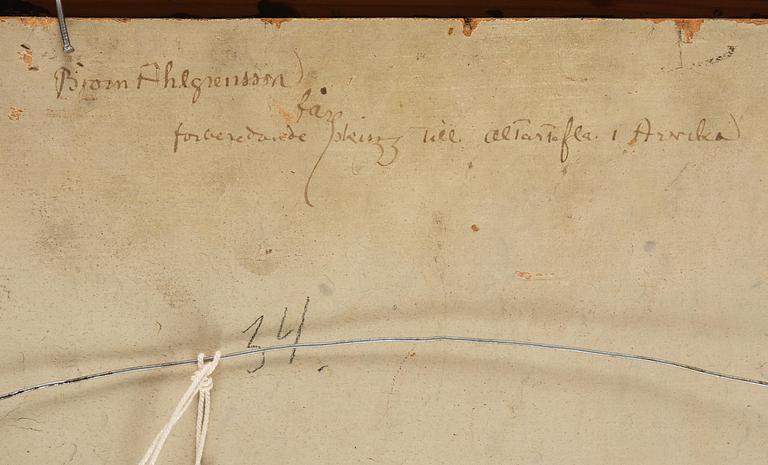 Bjorn Ahlgrensson
får
forberedande skizz till altartafla i Arvika
34.